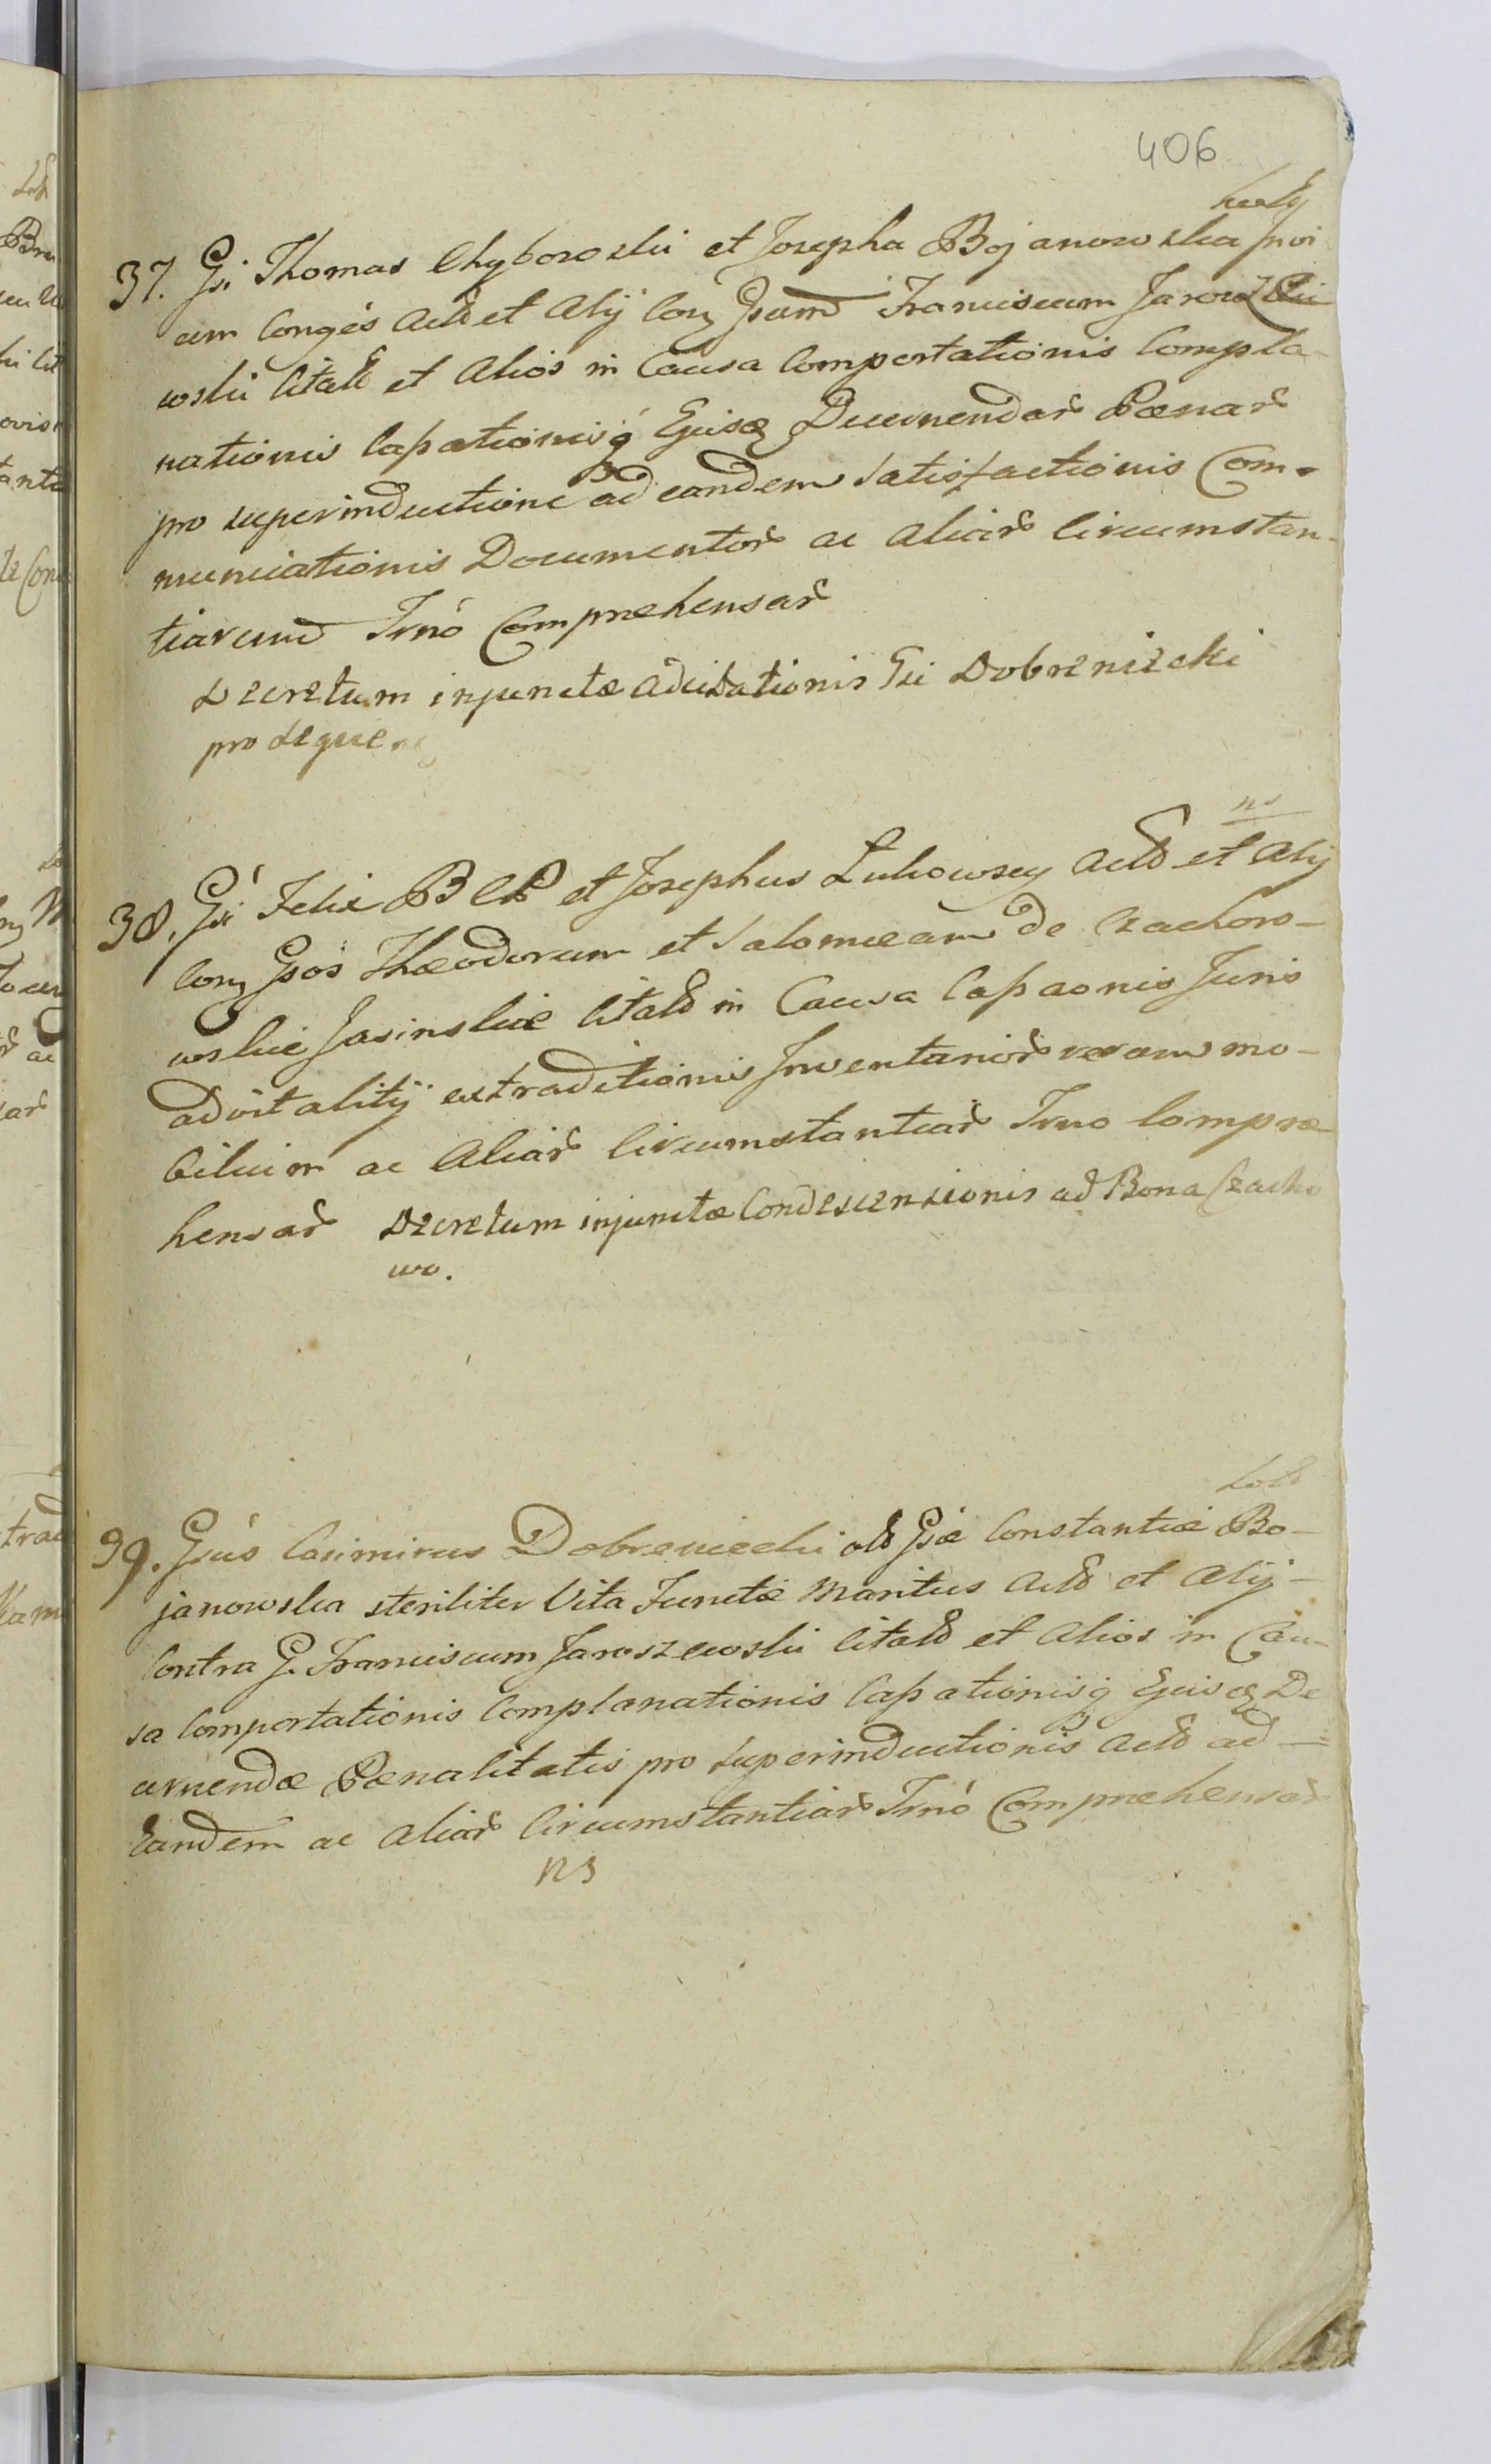 406
37. Gsi Thomas Chyborowski et Josepha Bojanowska Invi
cem Conges Actô et Alij Con Gsum Franciscum Jarosze
wski Citatô et Alios in Causa Comportationis Compla-
nationis Cassationisq Ejusq Decernendar Pænar
pro superinductione ad eandem Satisfactionis Com-
municationis Documentor ac Aliar Circumstan-
tiarum Trnó Comprehensar
Decretum injunctæ adcitationis Gsi Dobrzniecki
pro sequen
ns
38. Gsi Felix B C P et Josephus Łukowscy Actô et Alij
Con Gsos Theodorum et Salomeam de Czachoro-
wskie Jasinskie Citatô in Causa Cassaonis Juris
advitalitij extraditionis Inventarior rerum mo-
bilium ac Aliar Circumstantiar Trno Compræ
hensar Decretum injunctæ Condescensionis ad Bona Czacho
wo.
39. Gsus Casimirus Dobrzniecki olô Gsæ Constantiæ Bo-
janowska steriliter Vita Functæ Maritus Actô et Alij
Contra G. Franciscum Jaroszewski Citatô et Alios in Cau-
sa Comportationis Complanationis Cassationisq Ejusq De
cernendæ Pænalitatis pro superinductionis Actô ad
Eandem ac Aliar Circumstantiar Trnó Comprehensar
ns